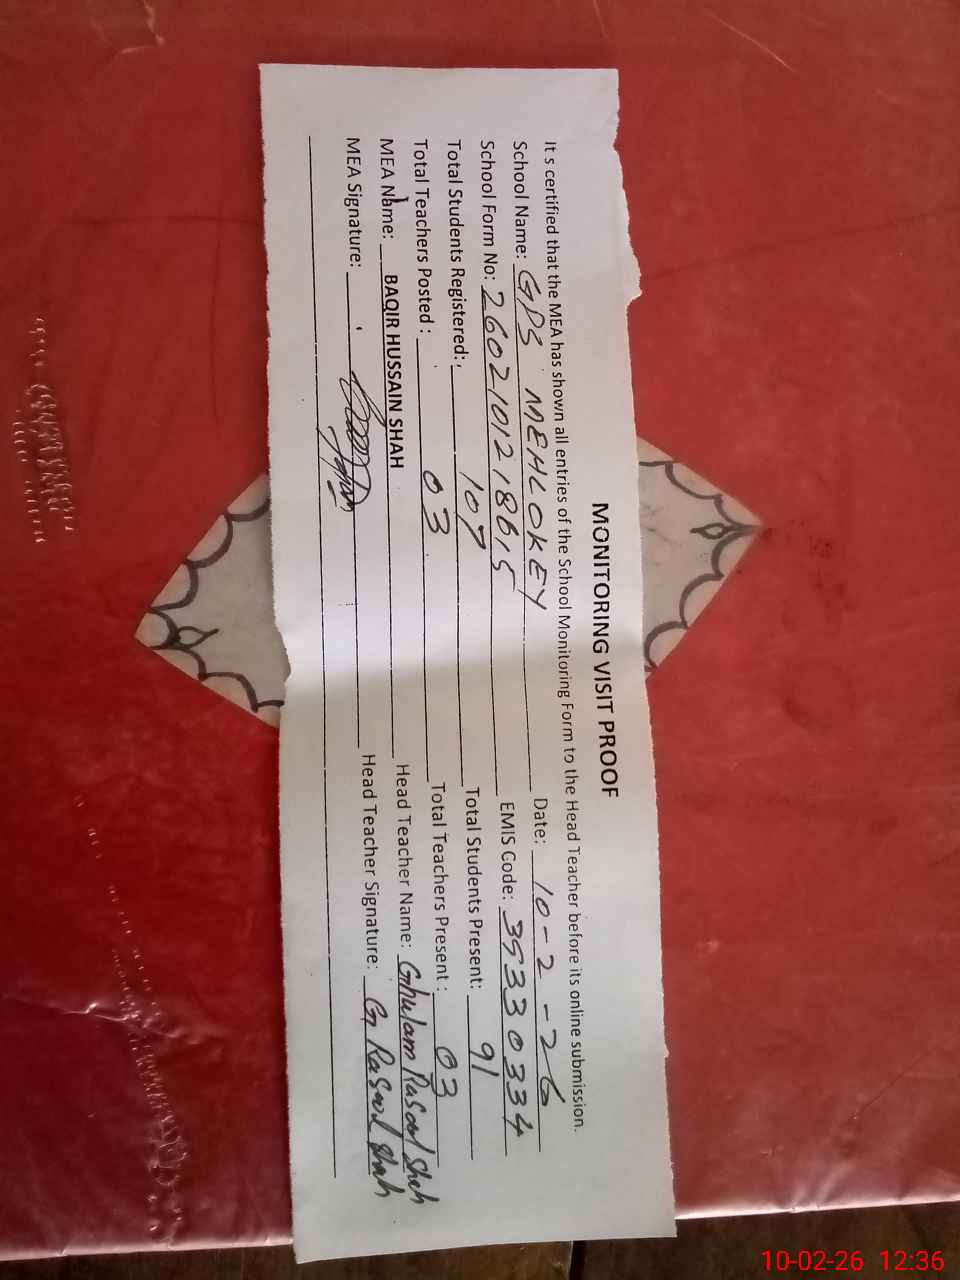 MONITORING VISIT PROOF
It s certified that the MEA has shown all entries of the School Monitoring Form to the Head Teacher before its online submission.
School Name: GPS MEHLOKEY Date: 10-2-26
School Form No: 2602101218615 EMIS Code: 35330334
Total Students Registered: 107 Total Students Present: 91
Total Teachers Posted : 03 Total Teachers Present : 03
MEA Name: BAQIR HUSSAIN SHAH Head Teacher Name: Ghulam Rasool Shah
MEA Signature: Head Teacher Signature: G Rasool Shah
10-02-26 12:36